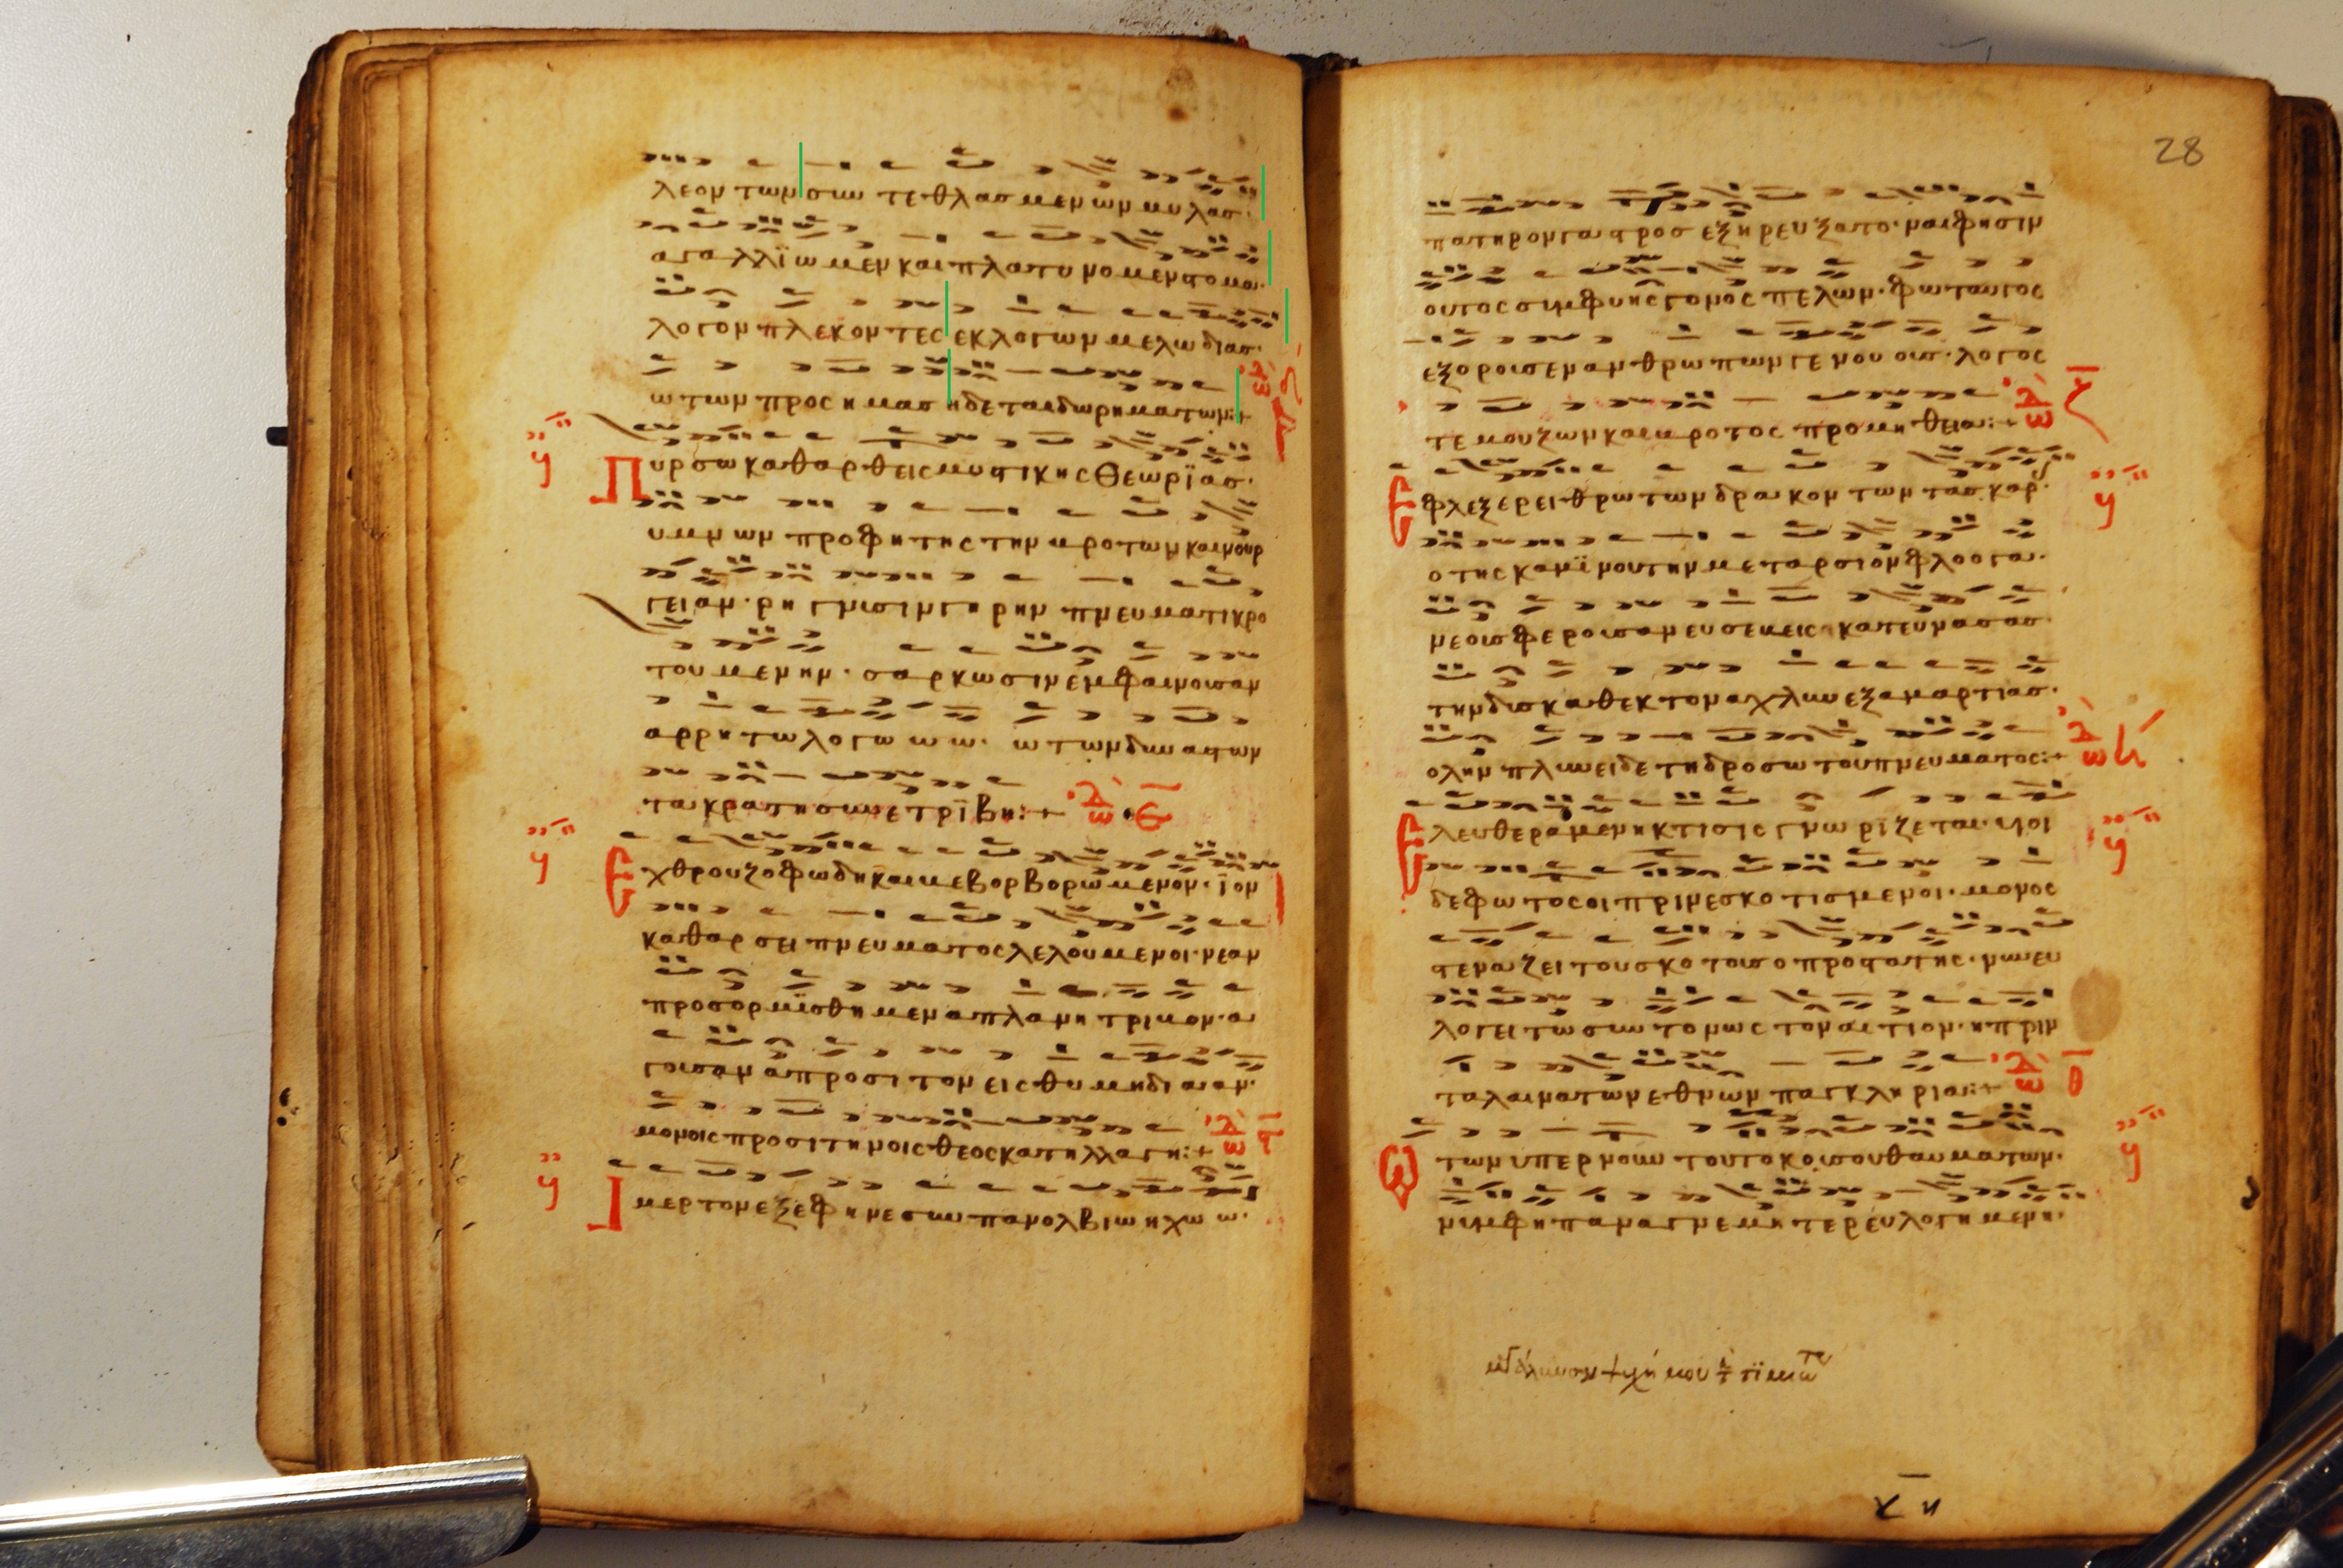 λεον των συν τεθλασμενων μυλας·
αγαλλϊωμεν και πλατυνομεν στομα·
λογον πλεκοντες εκ λογων μελωδιας·
ω των προς ημας ηδεται δωρηματων:+
Πυρσω καθαρθεις μυστικης θεωρϊας·
υμνων προφητης την βροτων καινουρ
γειαν· ρηγνυσιν γηρην πνευματι κρο
τουμενην· σαρκωσιν εμφαινουσαν
αρρητω λογω ω ω· ω των δυναστων
τα κρατη συνετρϊβη:+ ε
Εχθρου ζοφωδη και βεβορβορωμενον· ϊον
καθαρσει πνευματος λελουμενοι· νεαν
προσορμϊσθημεν απλανη τριβον· α
γουσαν απροσιτον εις θυμηδιαν·
μονοις προσιτην οις θεος κατηλλαγη:+
Ιμερτον εξεφηνε συν πανολβιω ηχω ω·
28
πατηρ ον γαστρος εξηρευξατο· ναι φησιν
ουτος συμφυης γονος πελων· φωταυγος
εξορουσεν ανθρωπων γενους· λογος
τε μου ζων και βροτος προμηθεια:+ ζ
Εφλεξε ρειθρω των δρακοντων τας καρ·
ο της καμϊνου την μεταρσιον φλογα·
νεους φερουσαν ευσεβεις κατευνασας·
την δυσκαθεκτον αχλυν εξ αμαρτιας·
ολην πλυνει δε τη δροσω του πνευματος:+ η
Ελευθερα μεν η κτισις γνωρϊζεται· υιοι
δε φωτος οι πριν εσκοτισμενοι· μονος
στεναζει του σκοτους ο προστατης· νυν ευ
λογειτω συντονως τον αιτιον· η πριν
ταλαινα των εθνων παγκληρια:+ θ
Ω των υπερ νουν του τοκου σου θαυματων·
νυμφη παναγνε μητερ ευλογημενη·
μεγάλυνον ψυχή μου τϊμιωτε